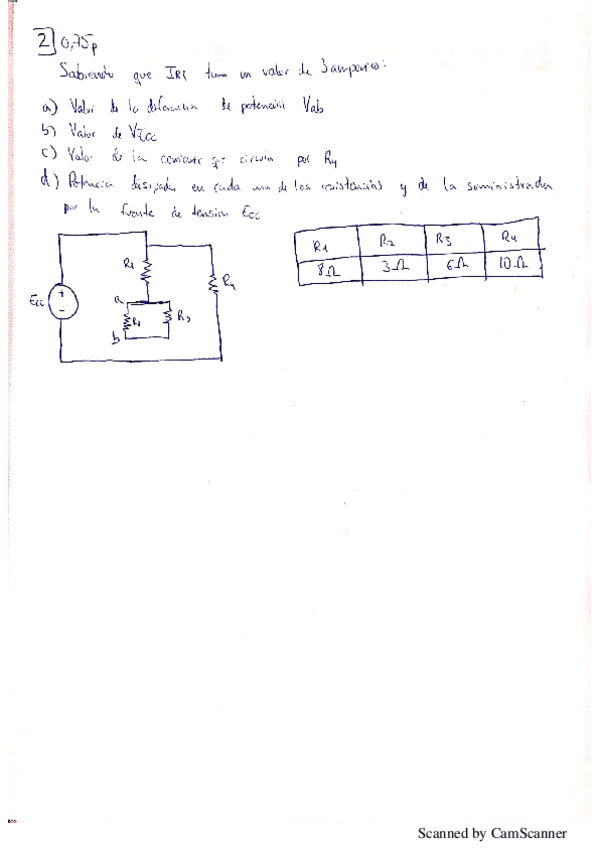 2] 0,75p
Sabiendo que IR1 tiene un valor de 3 amperios:
a) Valor de la diferencia de potencial Vab
b) Valor de
c) Valor de la corriente que circula por R4
d) Potencia disipada en cada una de las resistencias y de la suministrada
por la fuente de tension Ecc
R1 R2 R3 R4
8Ω 3Ω 6Ω 10Ω
R1
R4
Ecc
+
-
a
R2
R3
b
Scanned by CamScanner